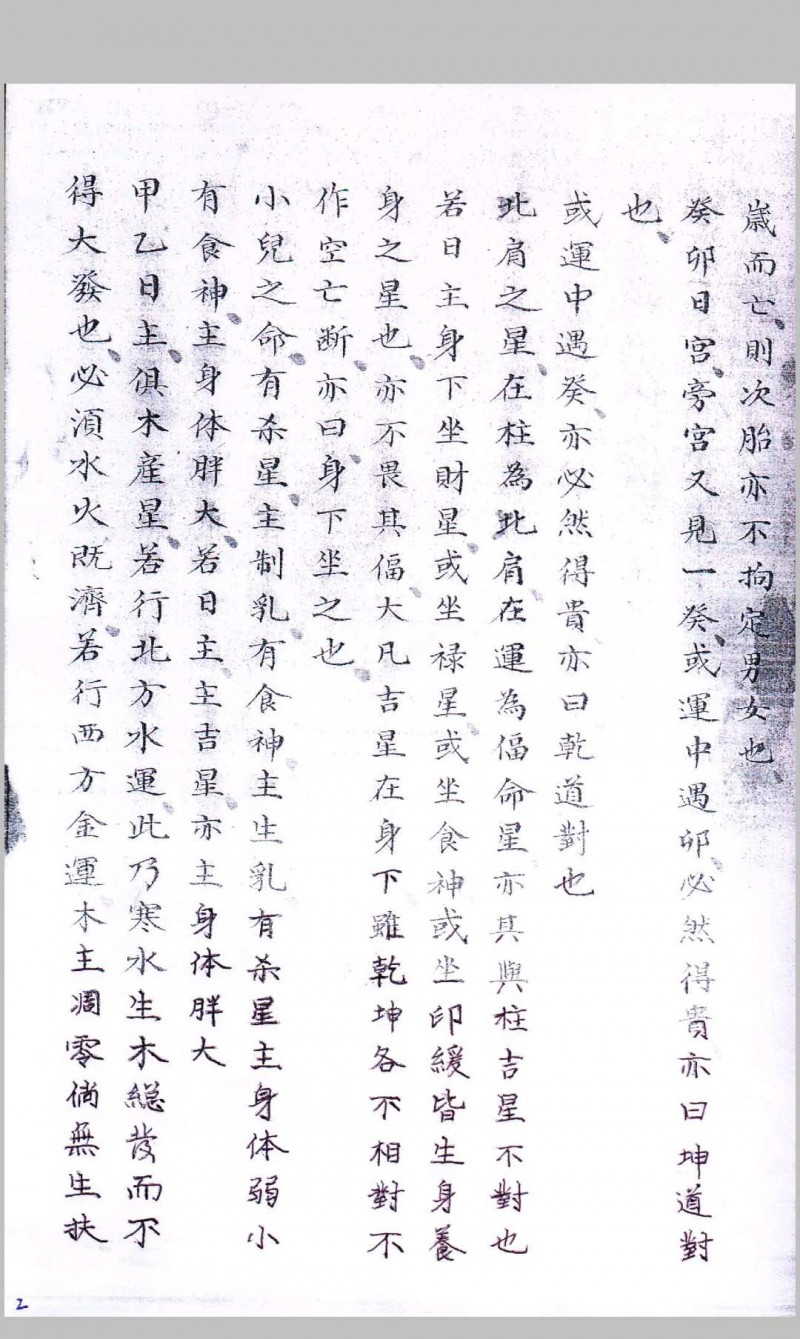 歲而亡則次胎亦不拘定男女也
癸卯日宮旁宮又見一癸或運中遇卯必然得貴亦曰坤道對
也
或運中遇癸亦必然得貴亦曰乾道對也
北肩之星在柱為北肩在運為偪命星亦其與柱吉星不對也
若日主身下坐財星或坐禄星或坐食神或坐印緩皆生身養
身之星也亦不畏其偪大凡吉星在身下雖乾坤各不相對不
作空亡断亦曰身下坐之也
小兒之命有杀星主制乳有食神主生乳有杀星主身体弱小
有食神主身体胖大若日主主吉星亦主身体胖大
甲乙日主俱木産星若行北方水運此乃寒水生木縂發而不
得大發也必湏水火既濟若行西方金運木主凋零倘無生扶
2